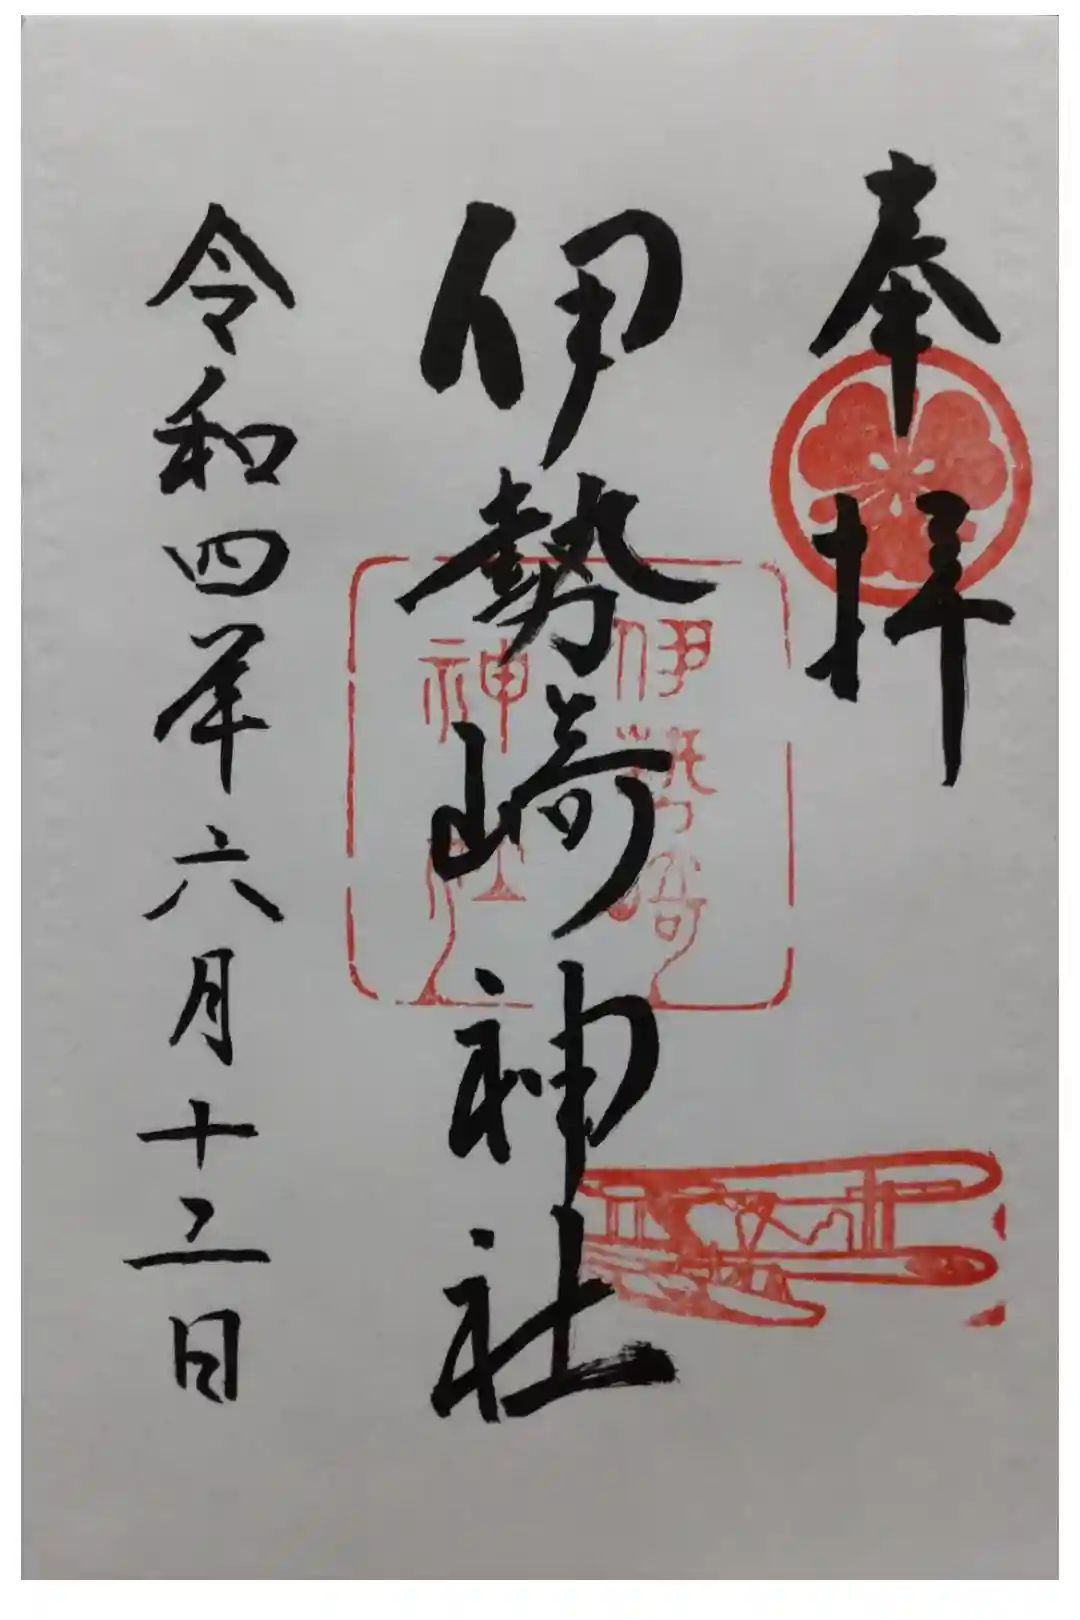 奉拝
伊勢崎神社
伊勢崎
神社
令和四年六月十二日